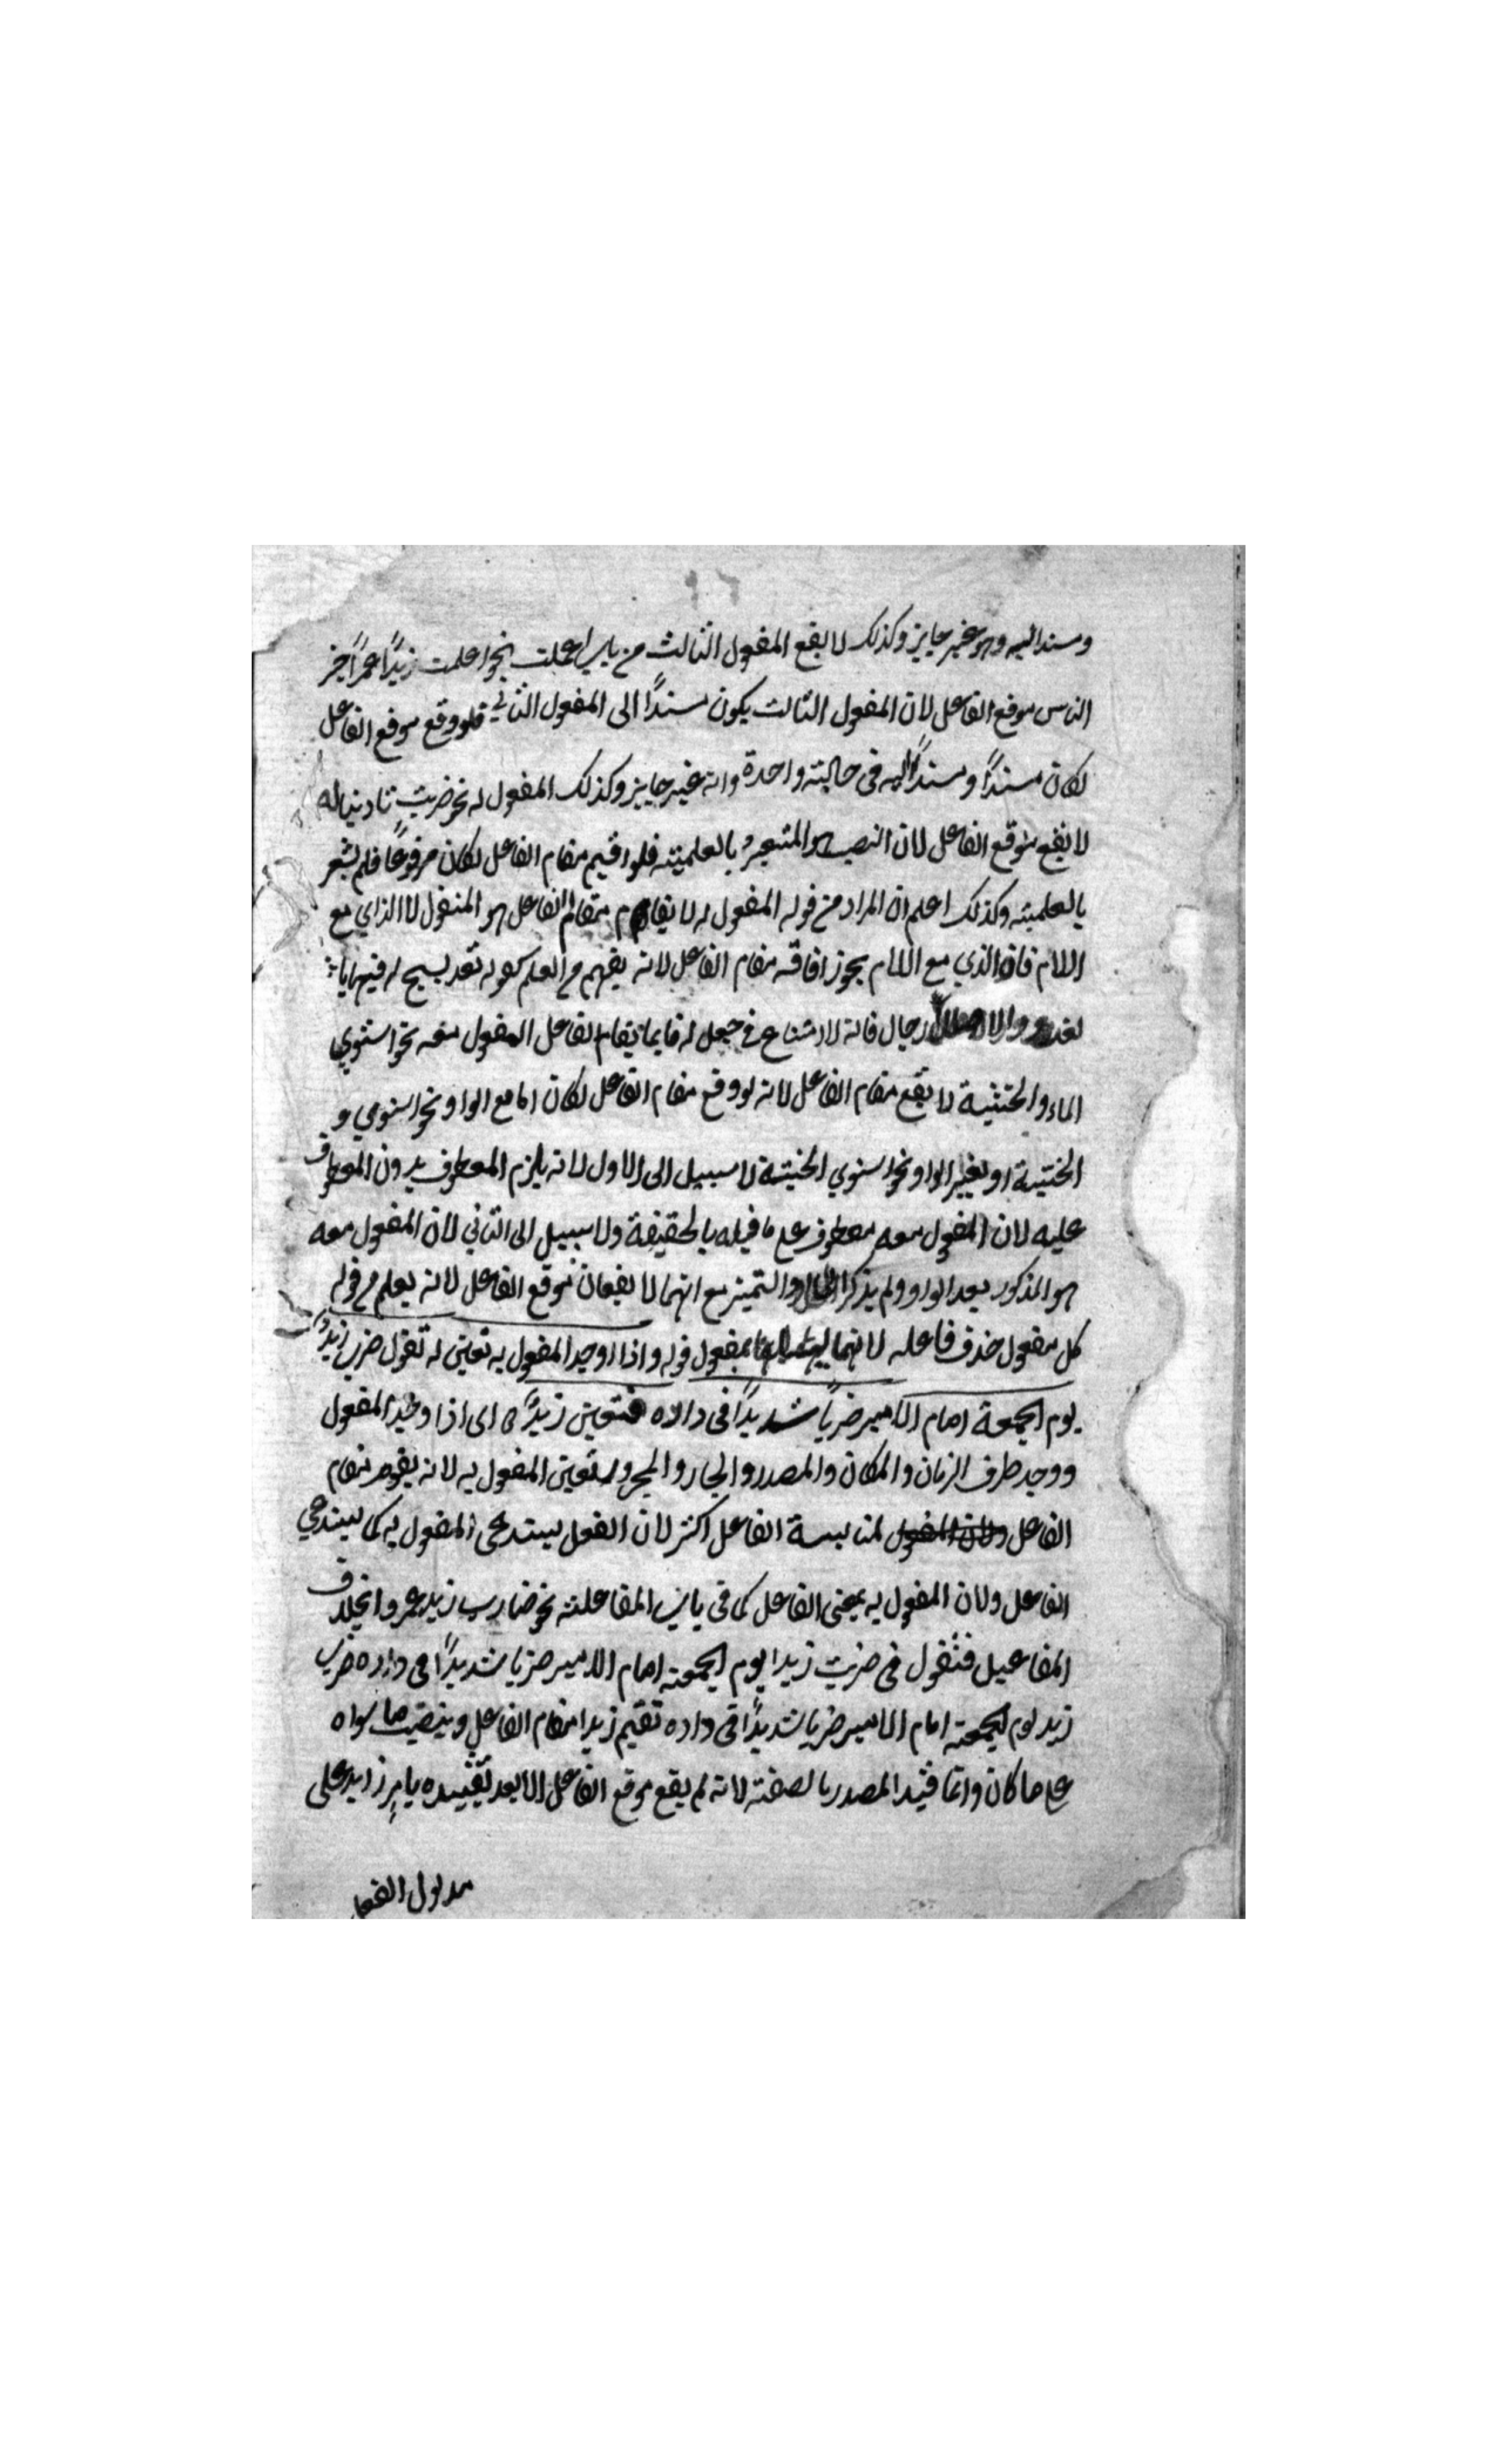 ومسندا اليه وهو غير جايز وكذلك لا يقع المفعول الثالث من باب اعملت نحو اعلمت زيدًا عمرًا خير
الناس موقع الفاعل لان المفعول الثالث يكون مسندًا الى المفعول الثاني فلو وقع موقع الفاعل
لكان مسندًا ومسندًا اليه في حالة واحدة وانه غير جايز وكذلك المفعول له نحو ضربت تاديبا له
لا يقع موقع الفاعل لان النصب هو المشعر بالعلمية فلو اقيم مقام الفاعل لكان مرفوعًا فلم يشعر
بالعلمية وكذلك اعلم ان المراد من قوله المفعول له لا يقام مقام الفاعل هو المفعول لا الذي مع
اللام فان الذي مع اللام يجوز اقامته مقام الفاعل لانه يفهم من العلم كقوله تعد يسبح له فيها با
لغدو والاصال رجال فانه لا امتناع في جعل له قايما مقام الفاعل المفعول معه نحو استوي
الماء والخشبة لا يقع مقام الفاعل لانه لو وقع مقام الفاعل لكان اما مع الواو نحو استوي و
الخشبة او بغير الواو نحو استوي الخشبة لا سبيل الى الاول لانه يلزم المعطوف بدون المعطوف
عليه لان المفعول معه معطوف على ما قبله بالحقيقة ولا سبيل الى الثاني لان المفعول معه
هو المذكور بعد الواو ولم يذكر الحال والتميز مع انهما لا يقعان موقع الفاعل لانه يعلم من قوله
كل مفعول حذف فاعله لانهما ليسا بمفعول قوله واذا وجد المفعول به تعين له تقول ضرب زيدٌ
يوم الجمعة امام الامير ضربًا شديدًا في داره فتعين زيدٌ اى اذا وجد المفعول
ووجد ظرف الزمان والمكان والمصدر والجار والمجرور تعين المفعول به لانه يقوم مقام
الفاعل لمناسبة الفاعل اكثر لان الفعل يستدعى المفعول به كما يستدعي
الفاعل ولان المفعول به بمعنى الفاعل كما في باب المفاعلة نحو ضارب زيد عمروا بخلاف
المفاعيل فتقول في ضربت زيدا يوم الجمعة امام الامير ضربا شديدًا في داره ضرب
زيد يوم الجمعة امام الامير ضربا شديدًا في داره تقيم زيدا مقام الفاعل وينصب ما سواه
على ما كان وانما قيد المصدر بالصفة لانه لم يقع موقع الفاعل الا بعد تقييده بامر زايد على
مدلول الفعل